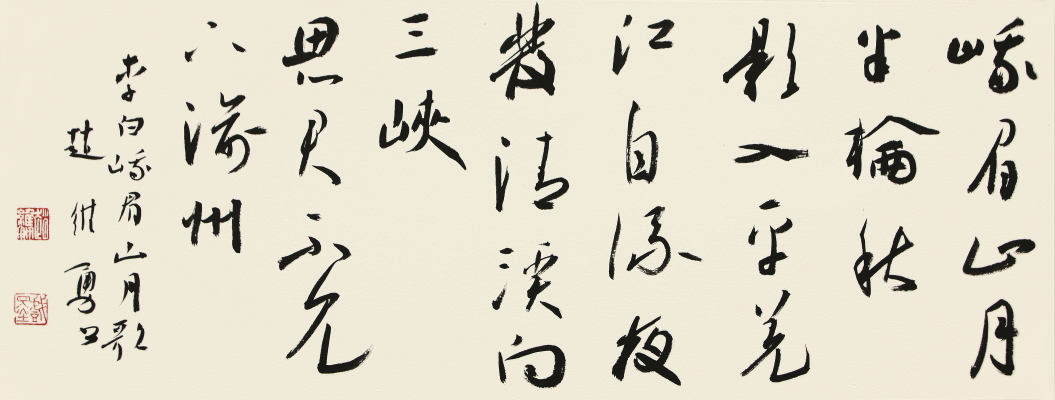 峨眉山月
半輪秋
影入平羌
江自流夜
發清溪向
三峽
思君不見
下渝州
李白峨眉山月歌
趙勇书